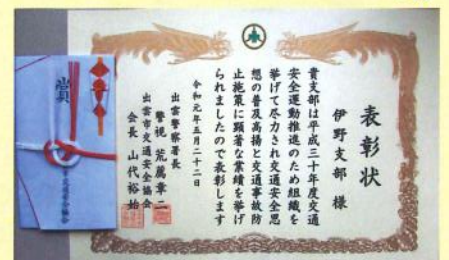 表彰状
伊野支部 様
貴支部は平成三十年度交通
安全運動推進のため組織を
挙げて尽力され交通安全思
想の普及高揚と交通事故防
止施策に顕著な業績を挙げ
られましたので表彰します
令和元年五月二十二日
出雲警察署長
警視 荒薦幸二
出雲市交通安全協会
会長 山代裕始
賞
市交通安全協会